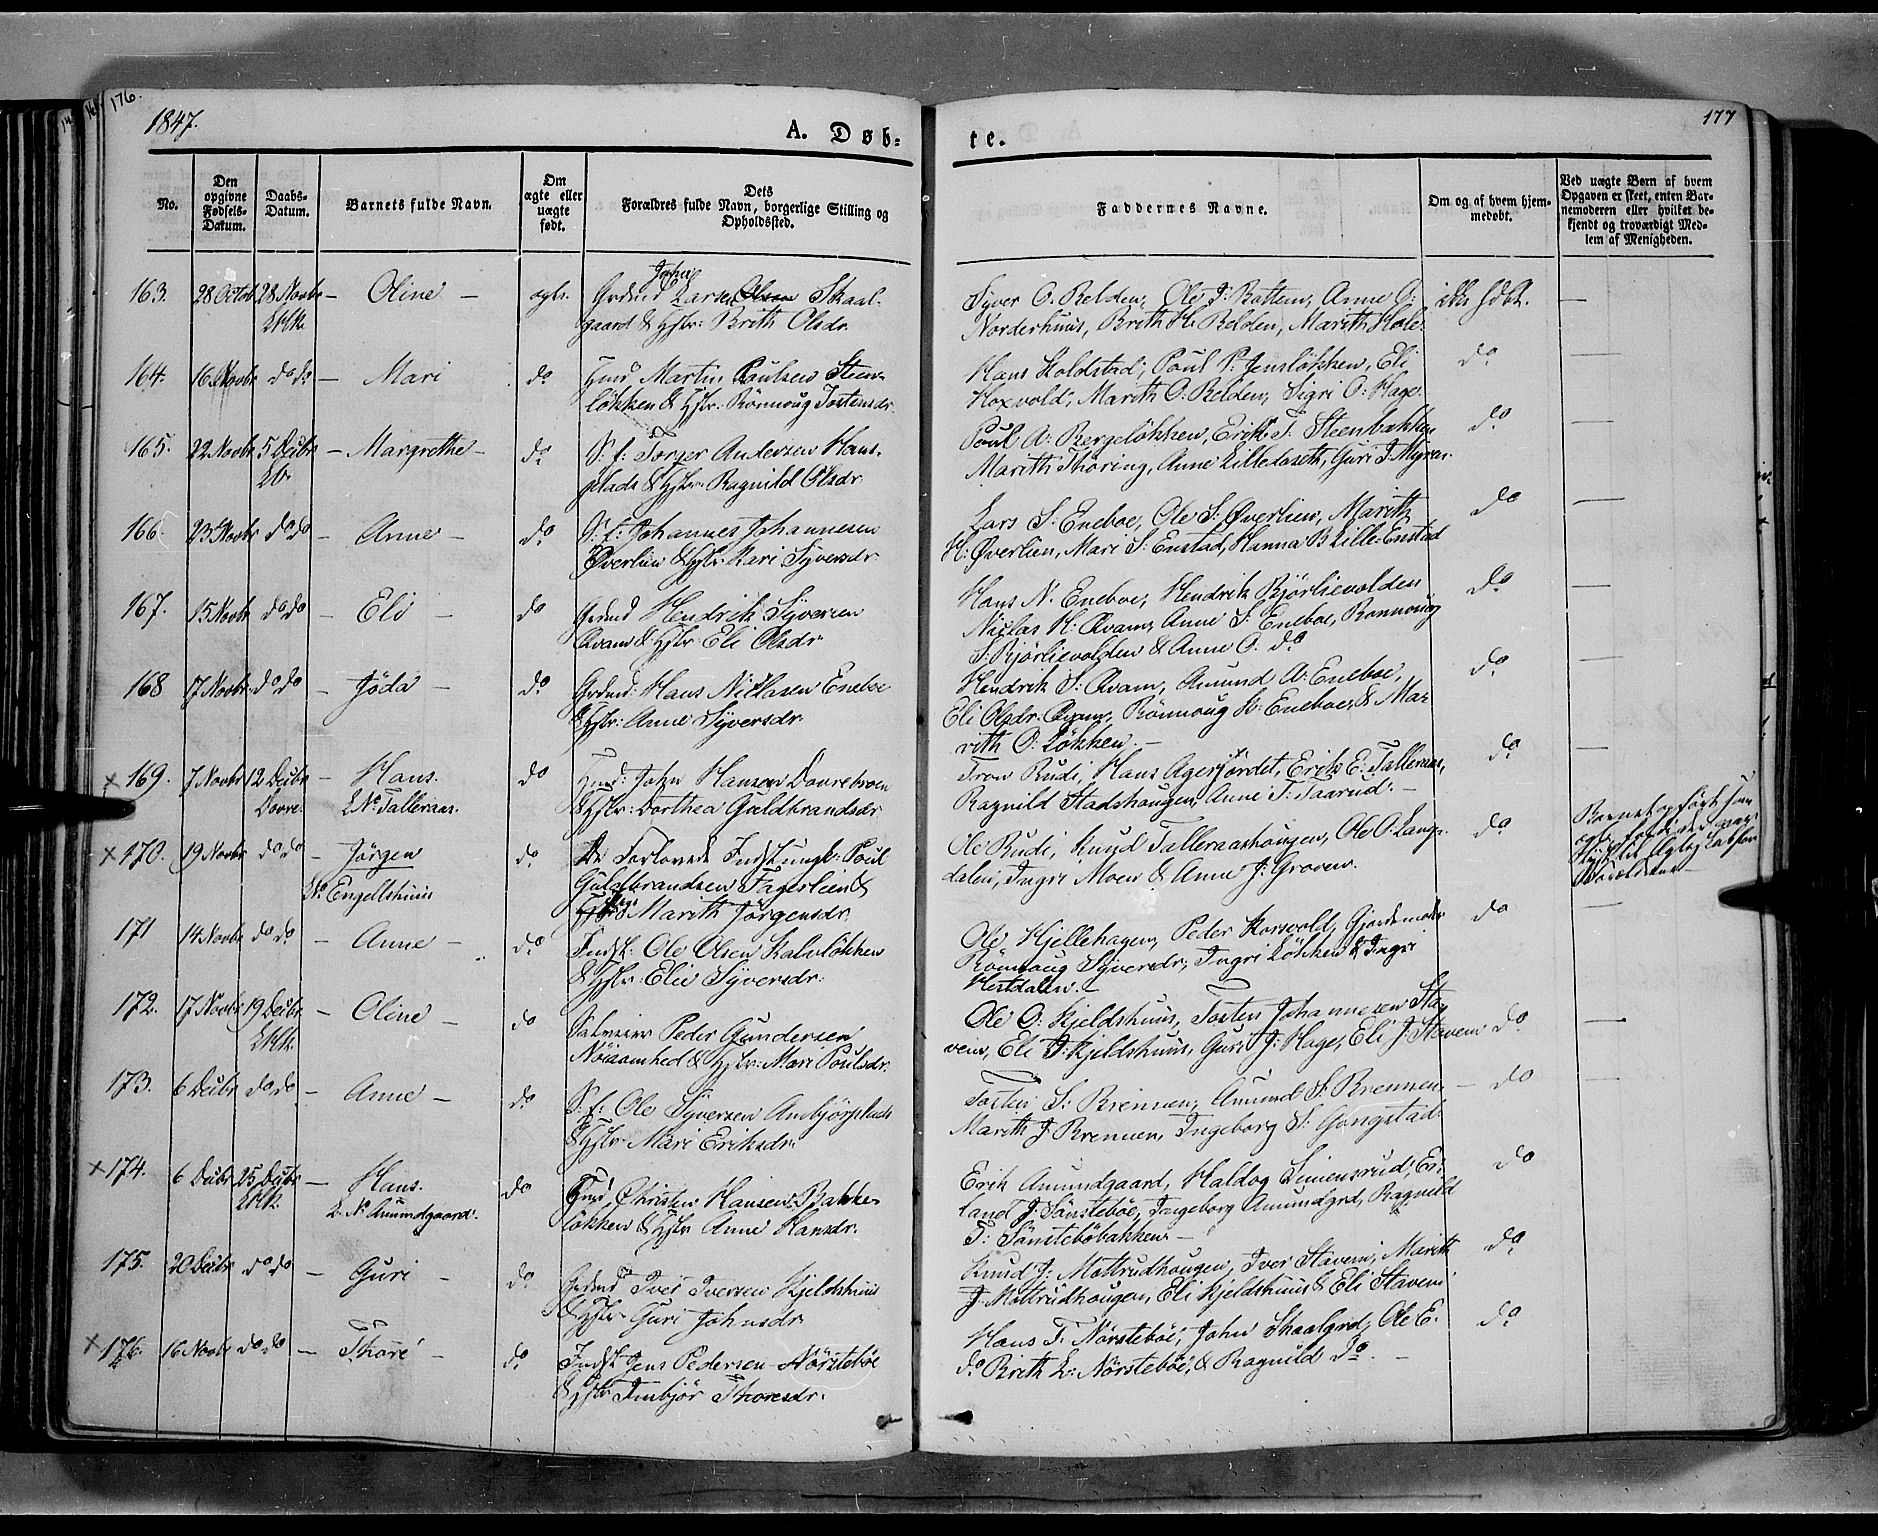 176.
1847.
A. Døb-
te.
177
No.
Den opgivne Fødsels-Datum.
Daabs-Datum.
Barnets fulde Navn.
Om ægte eller uægte født.
Dets
Forældres fulde Navn, borgerlige Stilling og
Opholdssted.
Faddernes Navne.
Om og af hvem hjem-
medøbt.
Ved uægte Børn af hvem
Opgaven er skeet, enten Bar-
nemoderen eller hvilket be-
kjendt og troværdigt Med-
lem af Menigheden.
163. 28 Octob 28 Novbr – Oline – ægte.
John
Grdmd Larsen Olsen Skaal-
gaard & Hstr: Brith Olsdr
Syver O. Relden, Ole J: Botten, Anne O:
Norderhuus, Brith H. Relden, Marith Hole
164. 16 Novbr do do – Mari do
Martin Poulsen Steen-
løkken & Hstr: Rönnoug Jostensdr.
Hans Holdstad, Poul P. Jensløkken, Eli
Hoxvold, Marith O. Relden, Sigri O: Hage. do
165. 22 Novbr 5 Decbr – Margrethe – do
Torger Andersen Hans-
plads & Hstr: Ragnild Olsdr
Poul A: Bergeløkken, Erik T. Steenbakken
Marith Thoring, Anne Lilledaseth, Guri J. Myran. do
166. 23 Novbr do do – Anne – do
P. f: Johannes Johannesen
Øverlien & Hstr. Mari Syversdr.
Lars S. Eneboe, Ole S: Øverlien, Marith
H: Øverlien, Mari S: Enstad, Hanna B Lille-Enstad do
167. 15 Novbr do do – Eli – do
Grdmd Hendrik Syversen
Qvam & Hstr Eli Olsdr
Hans N. Eneboe, Hendrik Bjørlievolden
Niclas H: Qvam, Anne S: Eneboe, Ronnoug
S. Bjørlievolden & Anne O. do do
168 17 Novbr do do – Jöda – do
Grdmd: Hans Niclasen Eneboe
& Hstr: Anne Syversdr.
Hendrik S: Qvam, Amund A: Eneboe,
Eli Olsdr. Qvam, Rönnoug H: Eneboe, & Ma-
rith O: Løkken. – do
× 169. 7 Novbr 12 Decbr – Hans. do
Dovre. 2 No Talleraas.
John Hansen Dovrebroen
& Hstr: Dorthea Guldbrandsdr
Tron Rudi, Hans Agerjordet, Erik E. Talleraas,
Ragnild Stadshougen, Anne T. Taarud. – do
× 170. 19 Novbr do do – Jörgen do
No Engelshuus
De Forlovede Indst. ungk: Poul
Guldbrandsen Fagerlien &
Marith Jörgensdr.
Ole Rudi, Knud Talleraashougen, Ole O. Lang-
dalen, Ingri Moen & Anne J. Groven. do
171 14 Novbr do do – Anne – do
Indst: Ole Olsen Kalvløkken
& Hstr: Elie Syversdr:
Ole Kjellehagen, Peder Korsvold, Gjordemoder
Rönnoug Syversdr, Ingri Løkken & Ingri
Hestdalen. – do
172. 17 Novbr 19 Decbr – Oline – do
Peder Gundersen
Nöisomhed & Hstr: Mari Poulsdr.
Ole O: Kjeldshuus, Tosten Johannesen Sta-
vem, Eli J: Kjeldshuus, Guri J: Hage, Eli J Stavem do
173. 6 Decbr do do – Anne – do
P. f: Ole Syversen Anbjörplads
& Hstr. Mari Eriksdr.
Tosten S: Brennen, Amund S. Brennen. –
Marith J Brennen, Ingeborg S: Gongstad. do
× 174. 6 Decbr 25 Decbr – Hans. do
2. No Amundgaard.
Christen Hansen Bakke-
løkken & Hstr Anne Hansdr.
Erik Amundgaard, Haldog Simensrud, Er-
land J. Sönsteböe, Ingeborg Amundgrd, Ragnild
T: Sönstebøbakken – do
175. 20 Decbr do do – Guri – do
Grdmd Iver Iversen Kjeldshuus
& Hstr Guri Johnsdr
Knud J: Mottrudhougen, Iver Stavem, Marith
J. Mottrudhougen, Eli Kjeldshuus & Eli Stavem do
× 176. 16 Novbr do do – Thore – do
Indst Jens Pedersen Nörsteböe
& Hstr Imbjör Thoresdr.
Hans T. Nörsteböe, John Skaalgrd, Ole E.
do Brith L: Nörsteböe, & Ragnild do. – do